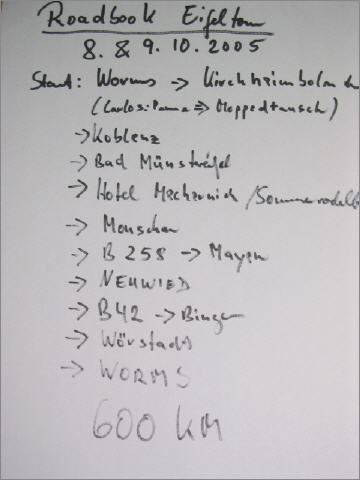 Roadbook Eifeltour
8. & 9. 10. 2005
Start: Worms → Kirchheimbolan
(Carlos: Panne ⇒ Moppedtausch)
→ Koblenz
→ Bad Münstereifel
→ Hotel Mechernich / Sommerrodelb
→ Monschau
→ B 258 → Mayen
→ NEUWIED
→ B42 → Bingen
→ Wörstadt
→ WORMS
600 KM